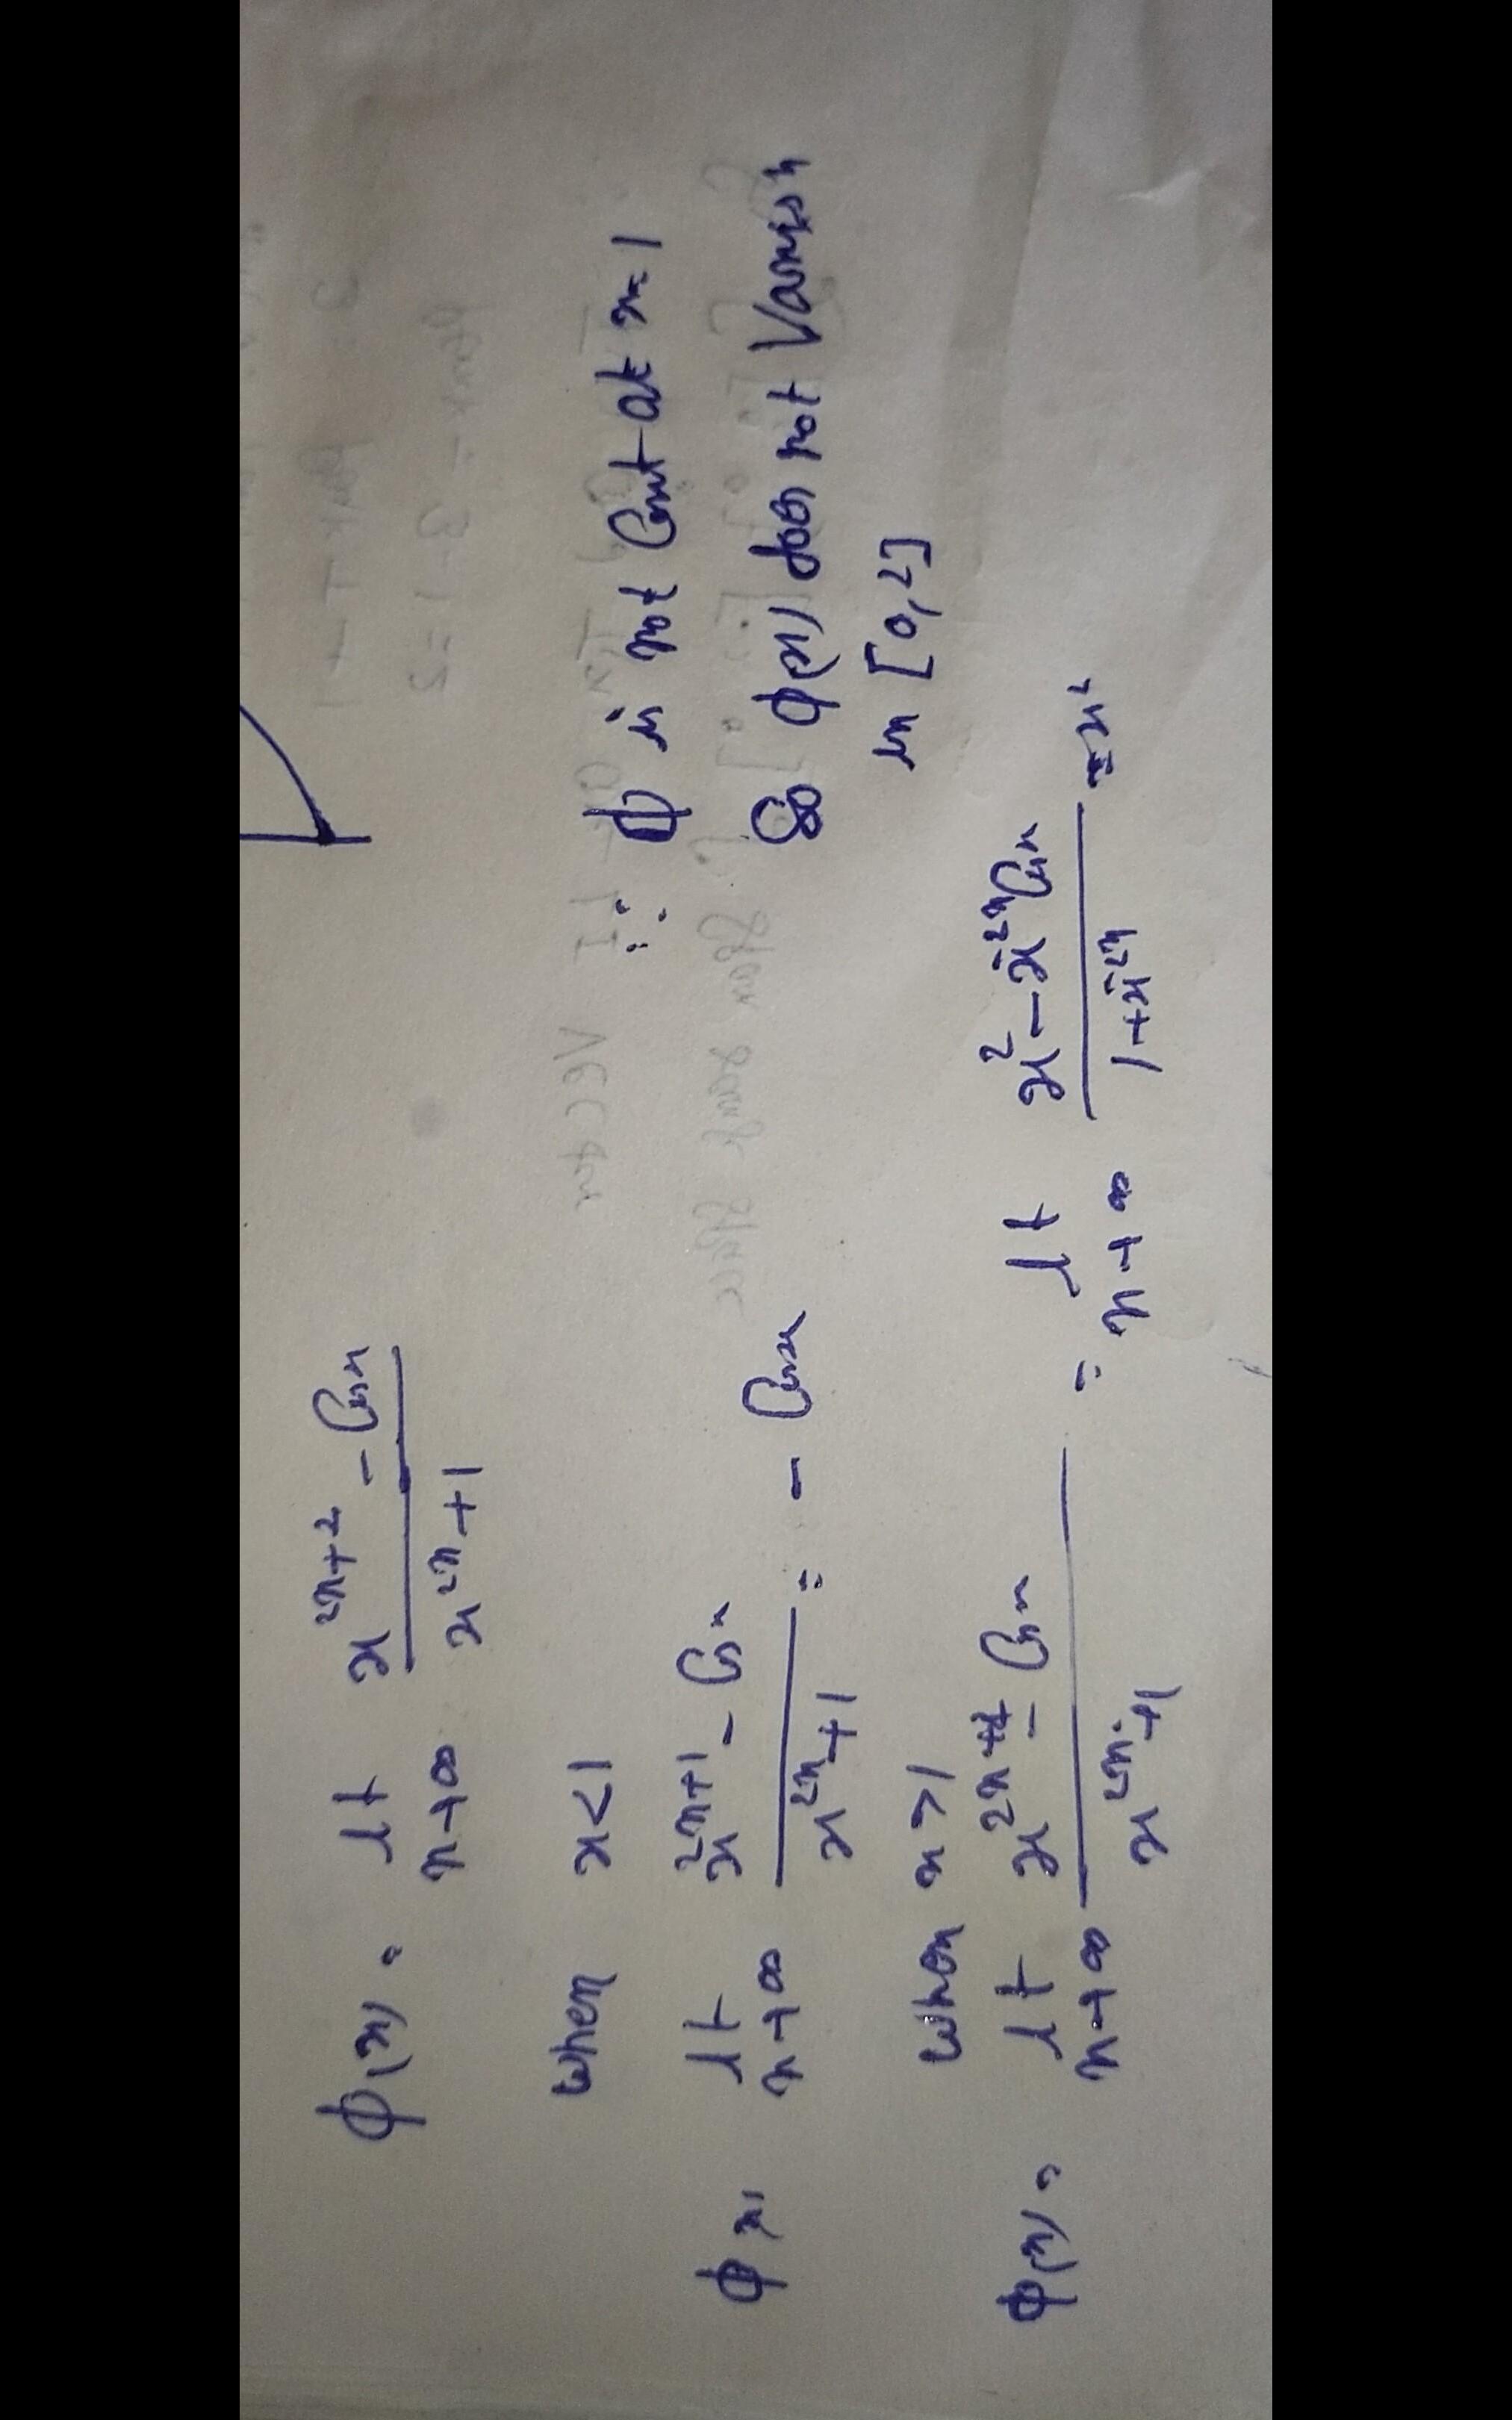 φ(x) = lt n→∞ (x^{2n+2} - Cosx) / (x^{2n}+1)
when x<1
φ(x) lt n→∞ (x^{2n+1} - Cosx) / (x^{2n}+1) = - Cosx
when x>1
φ(x) = lt n→∞ (x^{2n+2} - Cosx) / (x^{2n}+1) = lt n→∞ (x^2 - x^{-2n}Cosx) / (1+x^{-2n}) = x^2
∴ φ is not Cont at x=1
So φ(x) does not Vanish
in [0,2]